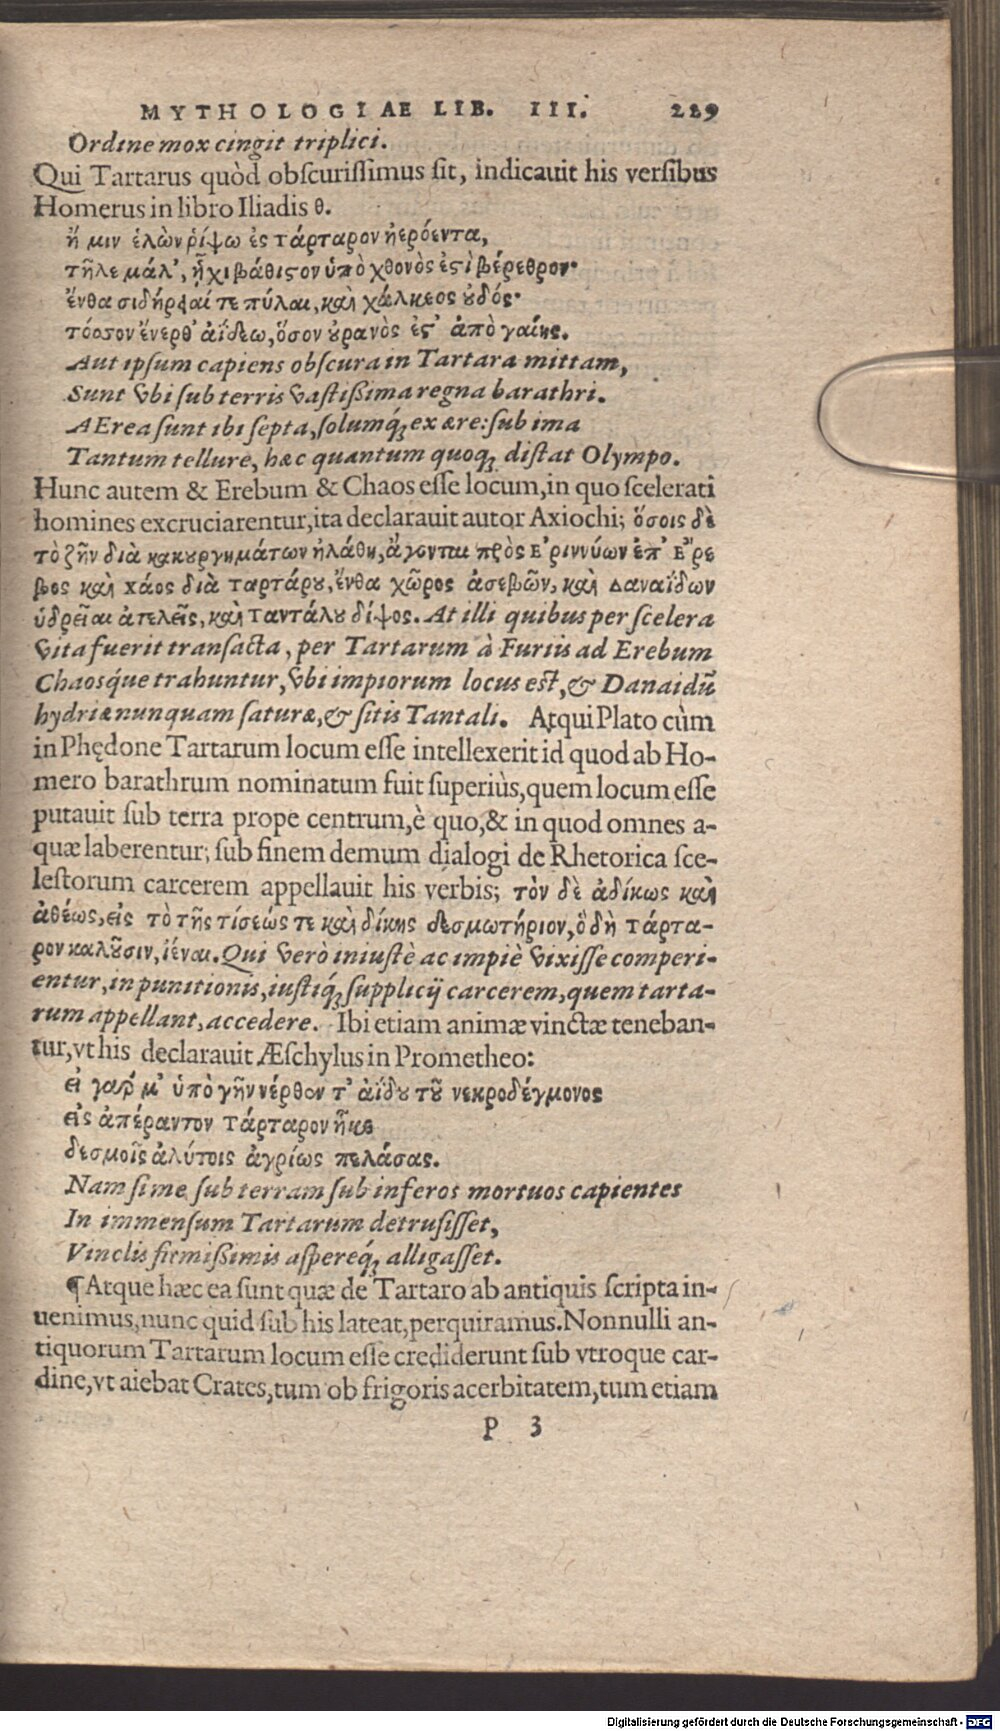 MYTHOLOGIAE LIB. III. 229
Ordine mox cingit triplici.
Qui Tartarus quòd obſcuriſſimus ſit, indicauit his verſibus
Homerus in libro Iliadis θ.
ἤ μιν ἑλὼν ῥίψω ἐς τάρταρον ἠερόεντα,
τῆλε μάλ', ᾗχι βάθιςον ὑπὸ χθονὸς ἐςὶ βέρεθρον·
ἔνθα σιδήρφαί τε πύλαι, καὶ χάλκεος ȣδός·
τόσσον ἔνερθ' ἀΐδεω, ὅσον ȣρανὸς ἐς' ἀπὸ γαίης.
Aut ipſum capiens obſcura in Tartara mittam,
Sunt vbi ſub terris vaſtißima regna barathri.
AErea ſunt ibi ſepta, ſolumq́ꝫ ex ære: ſub ima
Tantum tellure, hæc quantum quoqꝫ diſtat Olympo.
Hunc autem & Erebum & Chaos eſſe locum, in quo ſcelerati
homines excruciarentur, ita declarauit autor Axiochi; ὅσοις δὲ
τὸ ζῆν διὰ κακȣργημάτων ἠλάθη, ἄγονται πρὸς Ἐριννύων ἐπ' Ἔρε
βος καὶ χάος διὰ ταρτάρȣ, ἔνθα χῶρος ἀσεβῶν, καὶ Δαναΐδων
ὑδρεῖαι ἀτελεῖς, καὶ Ταντάλȣ δίψος. At illi quibus per ſcelera
vita fuerit tranſacta, per Tartarum à Furiis ad Erebum
Chaosq́ue trahuntur, vbi impiorum locus eſt, & Danaidũ
hydriæ nunquam ſaturæ, & ſitis Tantali. Atqui Plato cùm
in Phędone Tartarum locum eſſe intellexerit id quod ab Ho-
mero barathrum nominatum fuit ſuperiùs, quem locum eſſe
putauit ſub terra prope centrum, è quo, & in quod omnes a-
quæ laberentur; ſub finem demum dialogi de Rhetorica ſce-
leſtorum carcerem appellauit his verbis; τὸν δὲ ἀδίκως καὶ
ἀθέως, εἰς τὸ τῆς τίσεώς τε καὶ δίκης δεσμωτήριον, ὃ δὴ τάρτα-
ρον καλȣ͂σιν, ἰέναι. Qui verò iniuſtè ac impiè vixiſſe comperi-
entur, in punitionis, iuſtiq́ꝫ ſupplicij carcerem, quem tarta-
rum appellant, accedere. Ibi etiam animæ vinctæ teneban-
tur, vt his declarauit Æſchylus in Prometheo:
εἰ γάρ μ' ὑπὸ γῆν νέρθεν τ' ἀΐδȣ τȣ͂ νεκροδέγμονος
εἰς ἀπέραντον τάρταρον ἧκε
δεσμοῖς ἀλύτοις ἀγρίως πελάσας.
Nam ſi me ſub terram ſub inferos mortuos capientes
In immenſum Tartarum detruſiſſet,
Vinclis firmißimis aſpereq́ꝫ alligaſſet.
¶ Atque hæc ea ſunt quæ de Tartaro ab antiquis ſcripta in-
uenimus, nunc quid ſub his lateat, perquiramus. Nonnulli an-
tiquorum Tartarum locum eſſe crediderunt ſub vtroque car-
dine, vt aiebat Crates, tum ob frigoris acerbitatem, tum etiam
P 3
Digitalisierung gefördert durch die Deutsche Forschungsgemeinschaft - DFG